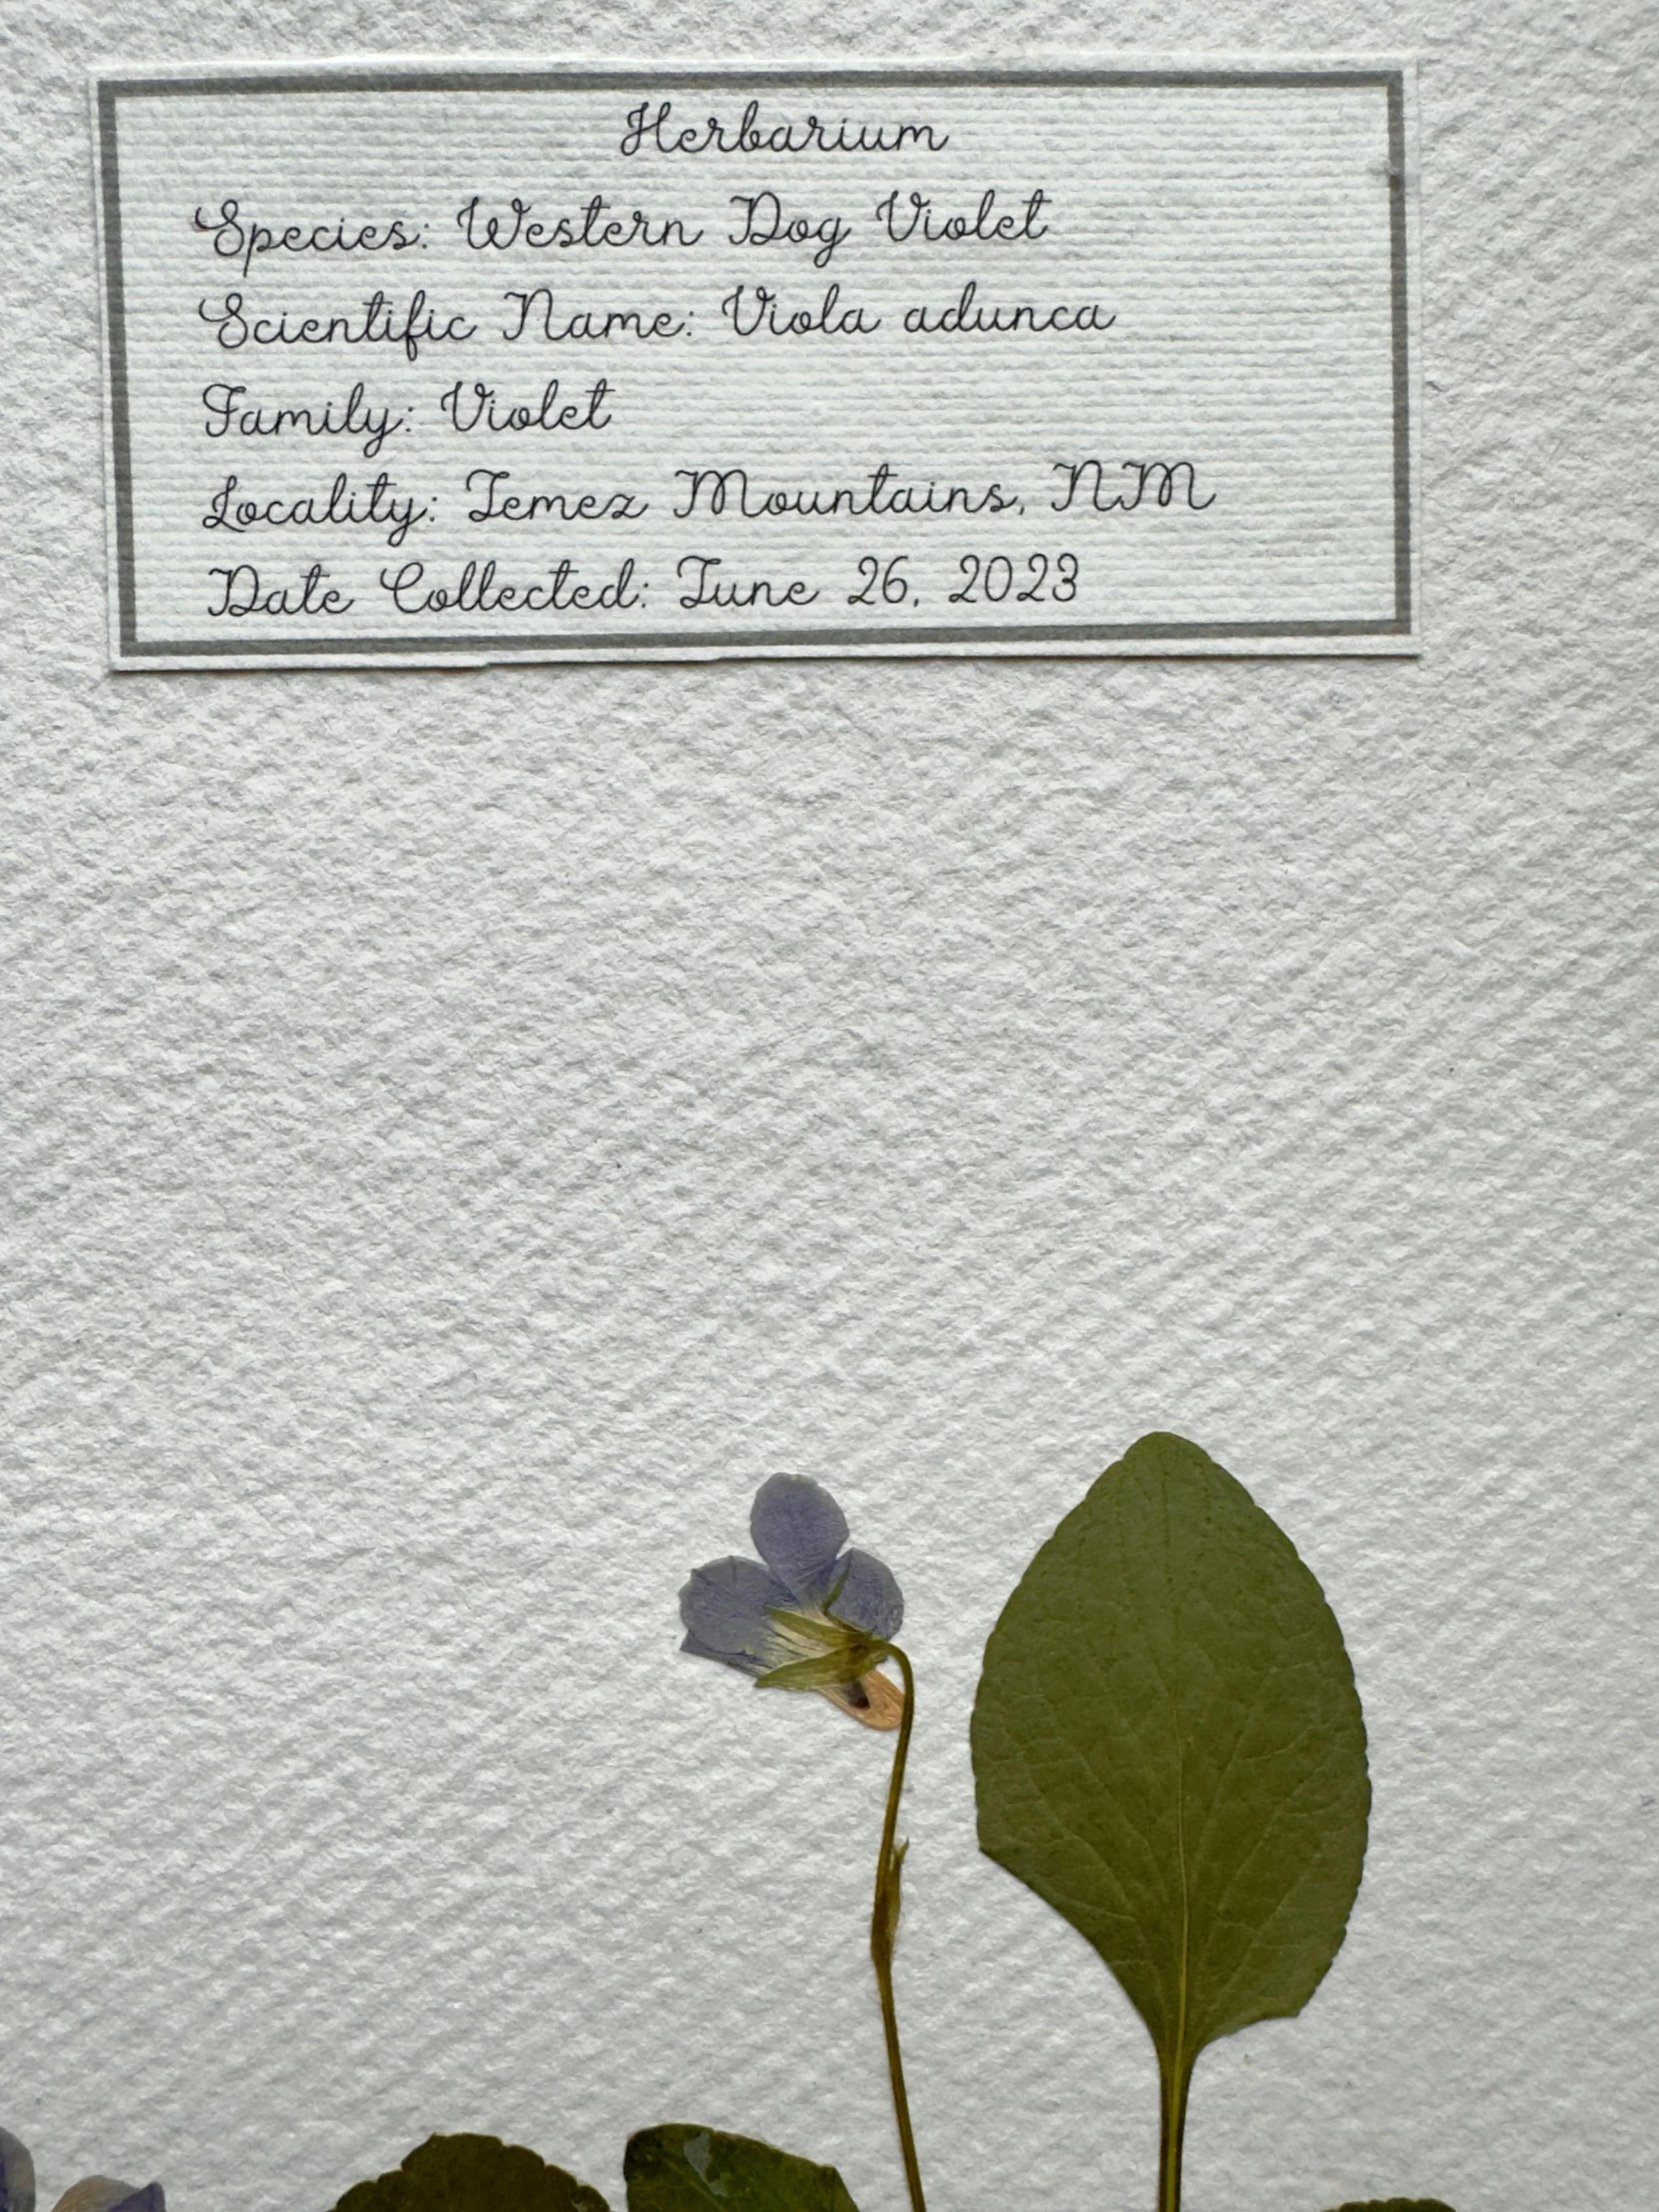 Herbarium
Species: Western Dog Violet
Scientific Name: Viola adunca
Family: Violet
Locality: Jemez Mountains, NM
Date Collected: June 26, 2023